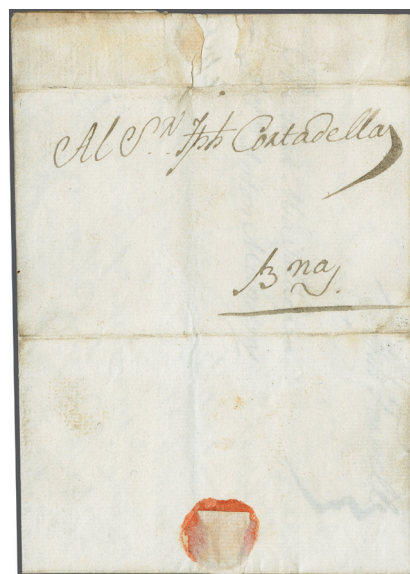 Al S.ⁿ Jph Cortadella
Bna.